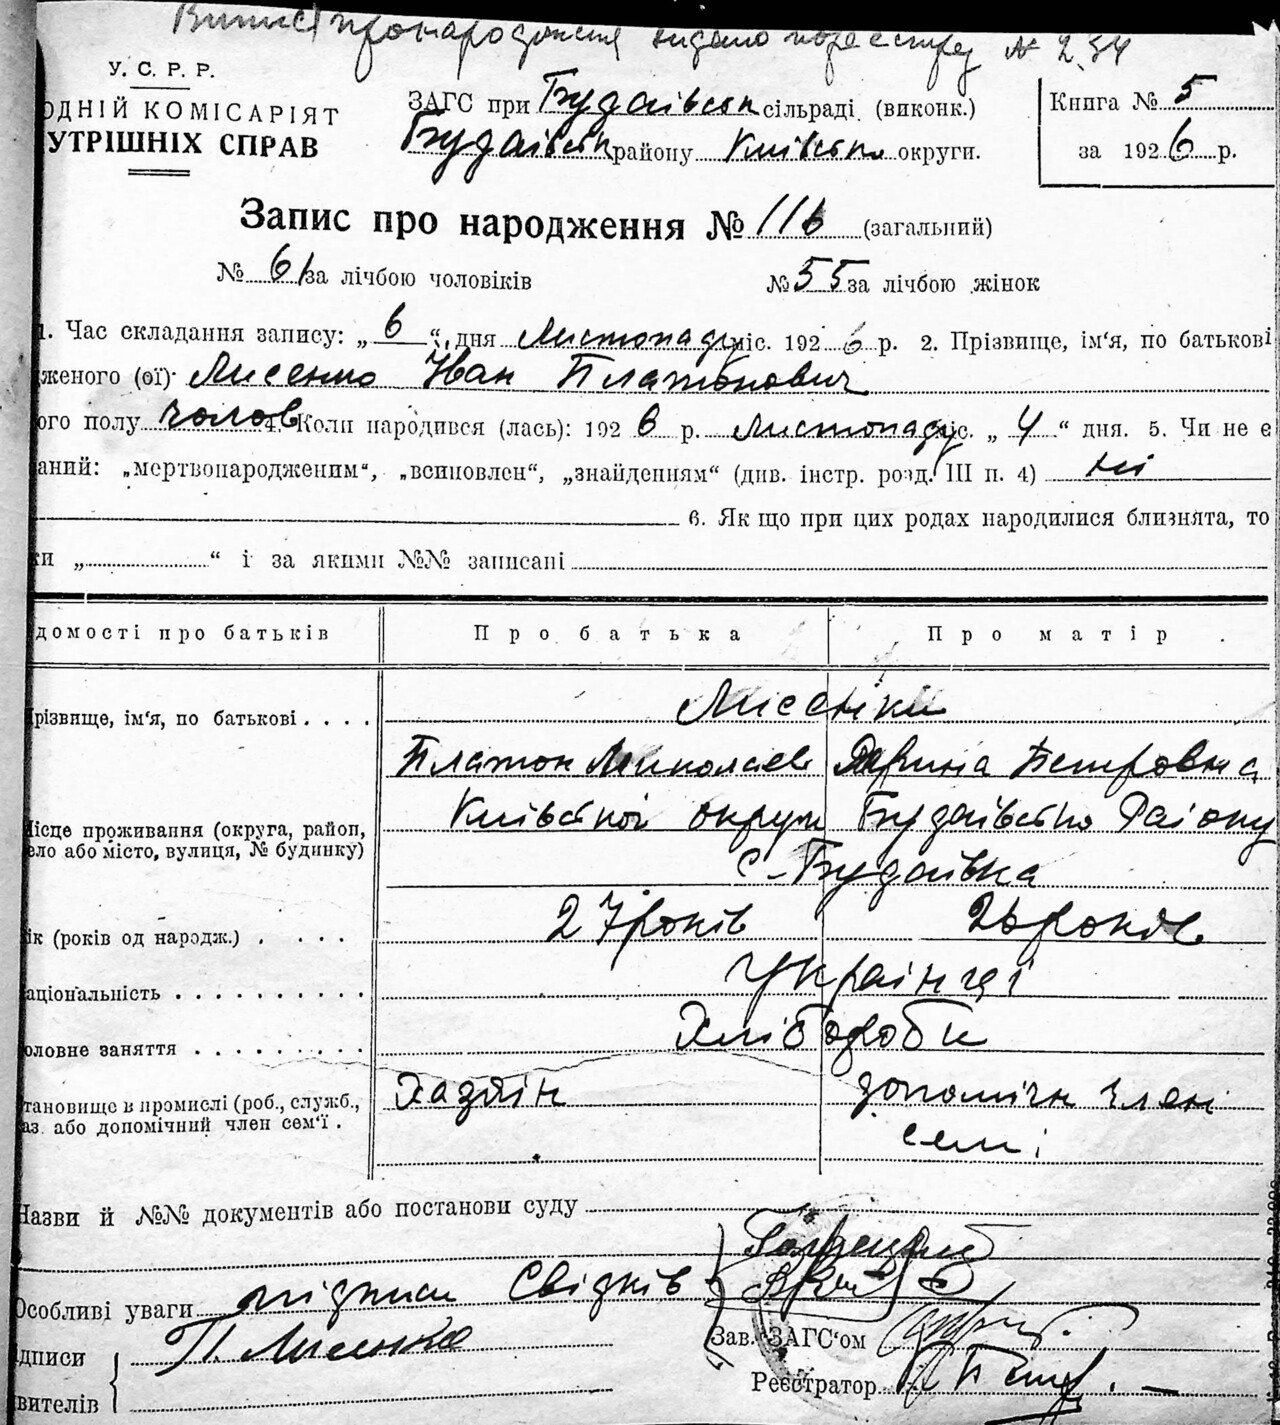 Випис про народження видано по реєстру № 234
У. С. Р. Р.
ОДНІЙ КОМІСАРІЯТ
УТРІШНІХ СПРАВ
ЗАГС при Будаївськ сільраді (виконк.)
Будаївськ району Київськ округи.
Книга № 5
за 1926 р.
Запис про народження № 116 (загальний)
№ 61 за лічбою чоловіків № 55 за лічбою жінок
1. Час складання запису: „ 6 “ дня Листопаду міс. 192 6 р. 2. Прізвище, ім'я, по батькові
женого (ої) Лисенко Иван Платонович
ого полу чолов 4. Коли народився (лась): 192 6 р. Листопаду с. „ 4 “ дня. 5. Чи не є
аний: „мертвонародженим“, „всиновлен“, „знайденням“ (див. інстр. розд. III п. 4) ні
6. Як що при цих родах народилися близнята, то
ки „ “ і за якими №№ записані
домості про батьків Про батька Про матір
різвище, ім'я, по батькові . . . . Лисенки
Платон Миколаєв Петровна
Київської округи Будаївсько Раіону
ісце проживання (округа, район,
ело або місто, вулиця, № будинку)
с-Будаівка
ік (років од народж.) . . . . 27 років 26 років
аціональність . . . . . . . . . . Українці
оловне заняття . . . . . . . . . Хлібороби
Хазяїн допомічн член
тановище в промислі (роб., служб.,
аз. або допомічний член сем'ї .
семі
Назви й №№ документів або постанови суду
Особливі уваги підписи Свідків
дписи П. Лисенко
Зав. ЗАГС'ом
вителів
Реєстратор